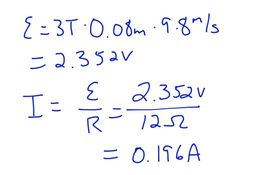 ε = 3T · 0.08m · 9.8 m/s
= 2.352V
I = ε/R = 2.352V/12Ω
= 0.196A